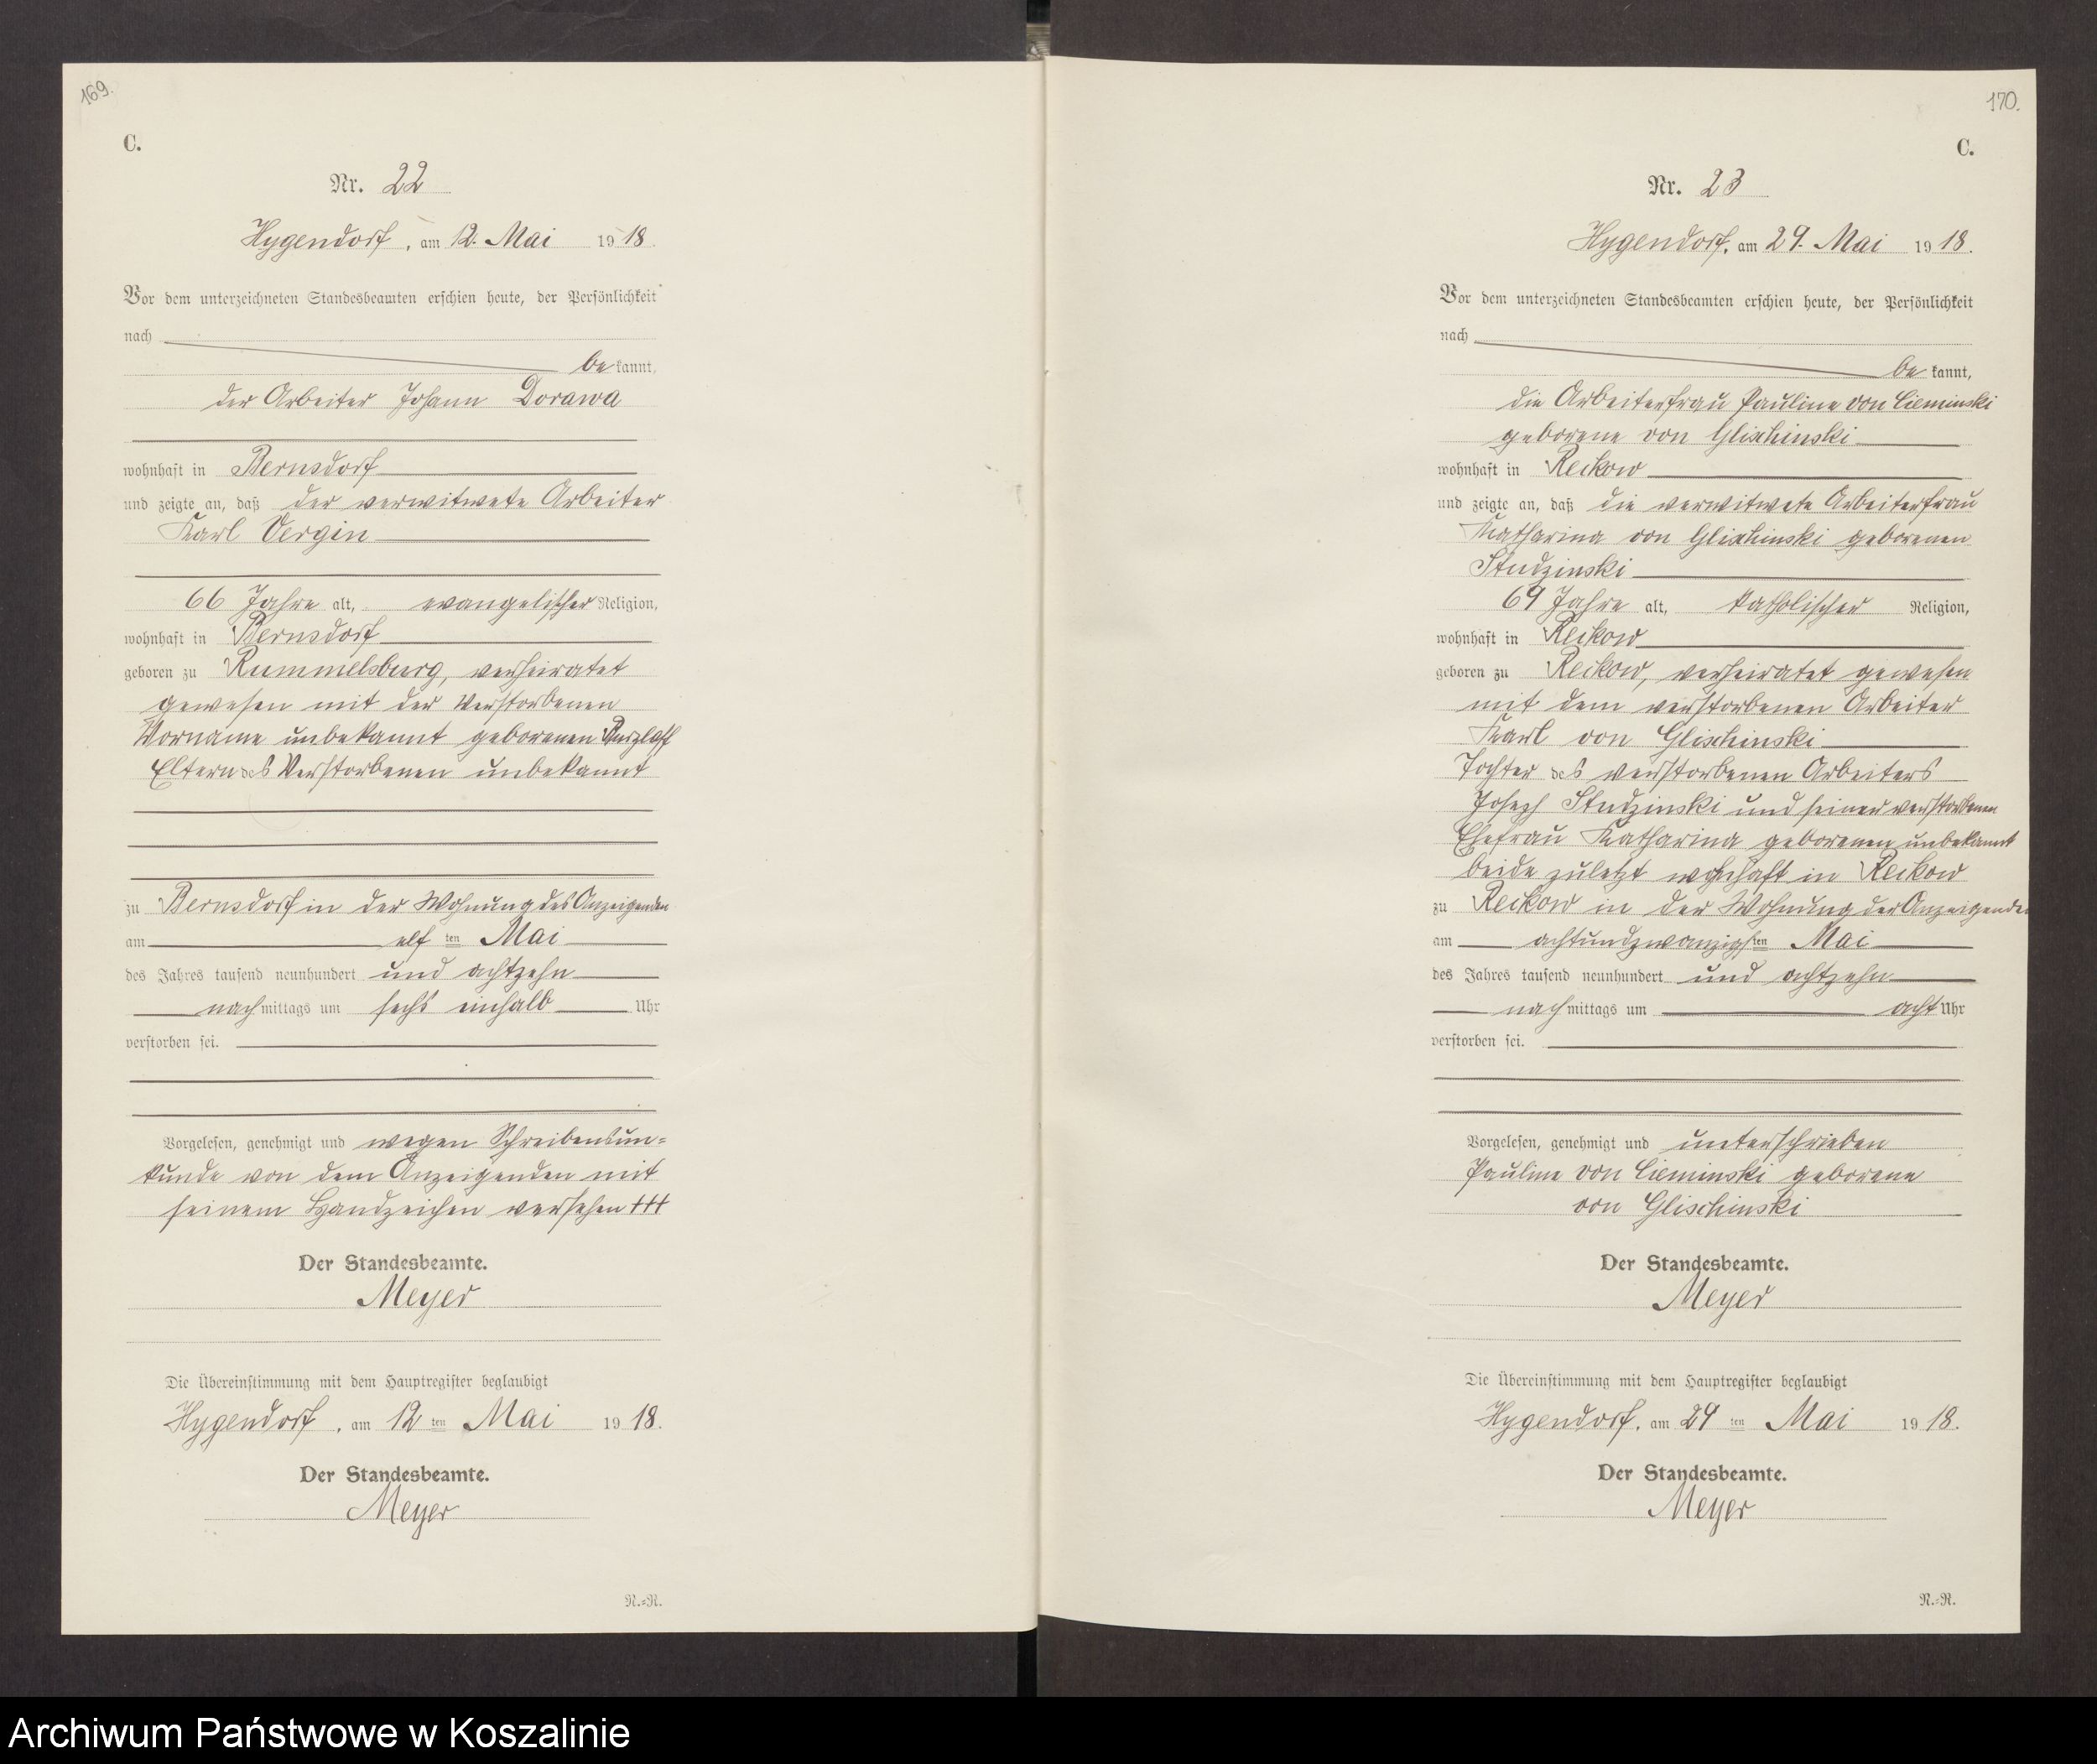 169.
C.
Nr. 22
Hygendorf, am 12. Mai 1918.
Vor dem unterzeichneten Standesbeamten erschien heute, der Persönlichkeit
nach
be kannt,
der Arbeiter Johann Dorawa
wohnhaft in Bernsdorf
und zeigte an, daß der verwitwete Arbeiter
Karl Vergin
66 Jahre alt, evangelischer Religion,
wohnhaft in Bernsdorf
geboren zu Rummelsburg, verheiratet
gewesen mit der Verstorbenen
Vorname unbekannt geborenen
Eltern des Verstorbenen unbekannt
zu Bernsdorf in der Wohnung des Anzeigenden
am elf ten Mai
des Jahres tausend neunhundert und achtzehn
nach mittags um sechs einhalb Uhr
verstorben sei.
Vorgelesen, genehmigt und wegen Schreibensun=
kunde von dem Anzeigenden mit
seinem Handzeichen versehen +++
Der Standesbeamte.
Meyer
Die Übereinstimmung mit dem Hauptregister beglaubigt
Hygendorf, am 12 ten Mai 1918.
Der Standesbeamte.
Meyer
N.=R.
170.
C.
Nr. 23
Hygendorf, am 29. Mai 1918.
Vor dem unterzeichneten Standesbeamten erschien heute, der Persönlichkeit
nach
be kannt,
die Arbeiterfrau Pauline von Cieminski
geborene von Glischinski
wohnhaft in Reckow
und zeigte an, daß die verwitwete Arbeiterfrau
Katharina von Glischinski geborenen
Studzinski
69 Jahre alt, katholischer Religion,
wohnhaft in Reckow
geboren zu Reckow, verheiratet gewesen
mit dem verstorbenen Arbeiter
Karl von Glischinski
Tochter des verstorbenen Arbeiters
Joseph Studzinski und seiner verstorbenen
Ehefrau Katharina geborenen unbekannt
beide zuletzt wohnhaft in Reckow
zu Reckow in der Wohnung der Anzeigenden
am achtundzwanzigs ten Mai
des Jahres tausend neunhundert und achtzehn
nach mittags um acht Uhr
verstorben sei.
Vorgelesen, genehmigt und unterschrieben
Pauline von Cieminski geborene
von Glischinski
Der Standesbeamte.
Meyer
Die Übereinstimmung mit dem Hauptregister beglaubigt
Hygendorf, am 29 ten Mai 1918.
Der Standesbeamte.
Meyer
N.=R.
Archiwum Państwowe w Koszalinie